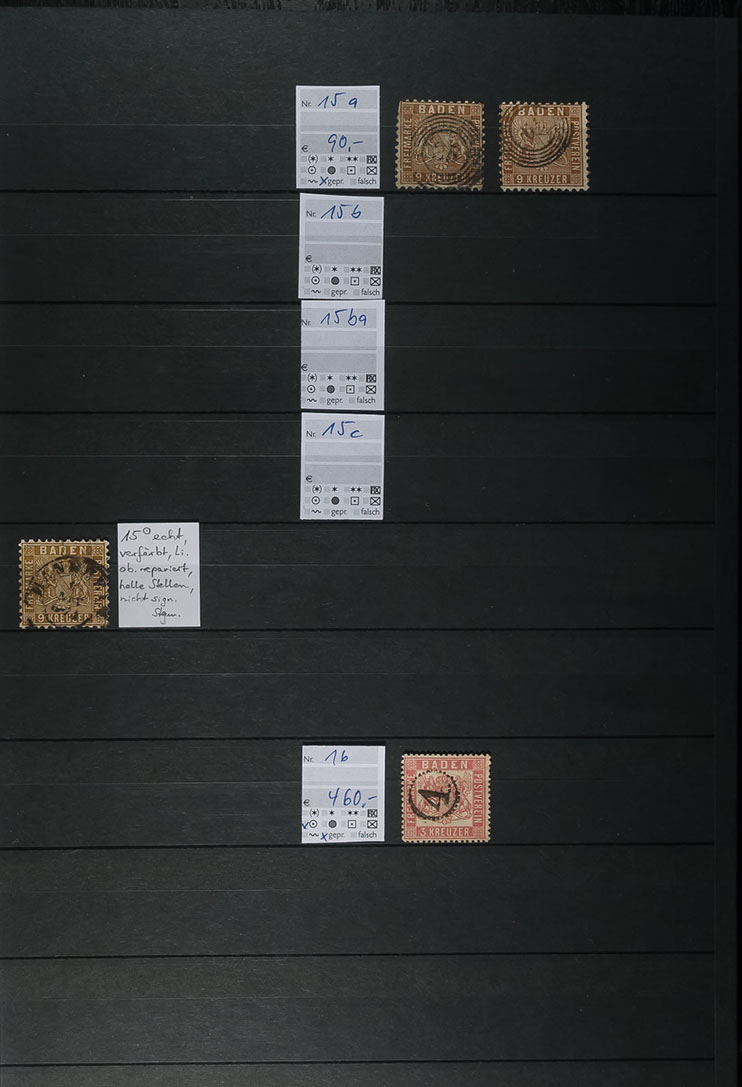 Nr. 15 a
€ 90,-
(*) * **
gepr. falsch
BADEN
FREIMARKE
9 KREUZER
BADEN
FREIMARKE
POSTVEREIN
9 KREUZER
Nr. 15 b
€
(*) * **
gepr. falsch
Nr. 15 ba
€
(*) * **
gepr. falsch
Nr. 15 c
€
(*) * **
gepr. falsch
BADEN
FREIMARKE
9 KREUZER
15 ⊙ echt,
verfärbt, li.
ob. repariert,
helle Stellen,
nicht sign.
Stgm.
Nr. 16
€ 460,-
(*) * **
gepr. falsch
BADEN
POSTVEREIN
1
3 KREUZER